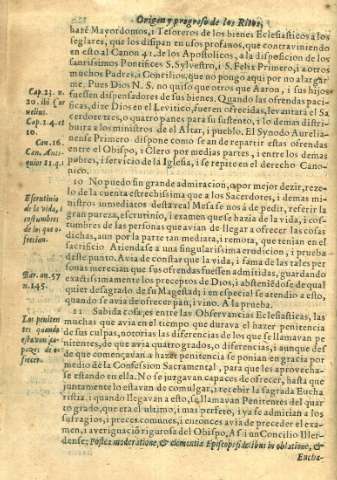 Origen y progreso de los Ritos,
haze Mayordomos, i Tesoreros de los bienes Eclesiasticos a los
seglares, que los disipan en usos profanos, que contraviniendo
en esto al Canon 41. de los Apostolicos, a la disposicion de los
santissimos Pontifices S. Sylvestro, i S. Feliz Primero, i a otros
muchos Padres, i Concilios, que no pongo aqui por no alargar
me. Pues Dios N. S. no quiso que otros que Aaron, i sus hijos
fuessen dispensadores de sus bienes. Quando las ofrendas paci-
ficas, dize Dios en el Levitico, fueren ofrecidas, levantará el Sa
cerdote tres, o quatro panes para su sustento, i lo demas distri-
buira a los ministros de el Altar, i pueblo. El Synodo Aurelia-
nense Primero dispone como se an de repartir estas ofrendas
entre el Obispo, i Clero por medias partes, i entre los demas
pobres, i servicio de la Iglesia, i se repite en el derecho Cano-
nico.
Cap. 23. n.
20.
Cap. 14. et
10.
Can. 16.
Can. Anti-
10 No puedo sin grande admiracion, o por mejor dezir, reze-
lo de la cuenta estrechissima que a los Sacerdotes, i demas mi-
nistros inmediatos desta real Mesa se nos á de pedir, referir la
gran pureza, escrutinio, i examen que se hazia de la vida, i cos-
tumbres de las personas que avian de llegar a ofrecer las cosas
dichas, aun por la parte tan mediata, i remota, que tenian en el
sacrificio. Atiendase a una singularissima erudicion, i prueba
deste punto. Avia de constar que la vida, i fama de las tales per
sonas merecian que sus ofrendas fuessen admitidas, guardando
exactissimamente los preceptos de Dios, i absteniēdose de qual
quier desagrado de su Magestad; i en especial se atendio a esto,
quando se avia de ofrecer pan, i vino. A la prueba.
Escrutinio
de la vida, i
costumbres
de los que o-
frecian.
Bar. an. 57
n. 145.
11 Sabida cosa es entre las Observancias Eclesiasticas, las
muchas que avia en el tiempo que durava el hazer penitencia
de sus culpas, notorias las diferencias de los que se llamavan pe
nitentes, de que avia quatro grados, o diferencias, i aunque des
de que començavan a hazer penitencia se ponian en gracia por
medio de la Confession Sacramental, para que les aprovecha-
se estando en ella. No se juzgavan capaces de ofrecer, hasta que
juntamente lo estavan de comulgar, i recebir la sagrada Eucha
ristia: i quando llegavan a esto, se llamavan Penitentes del quar
to grado, que era el ultimo, i mas perfeto, i ya se admitian a los
sufragios, i preces comunes, i entonces avia de preceder el exa-
men, i averiguaciō rigurosa del Obispo, Assi un Concilio Iller-
dense; Postea moderatione, & clementia Episcopi fidelibus in oblatione, &
Eucha-
Los peniten
tes quando
estavan ca-
pazes de o-
frecer.